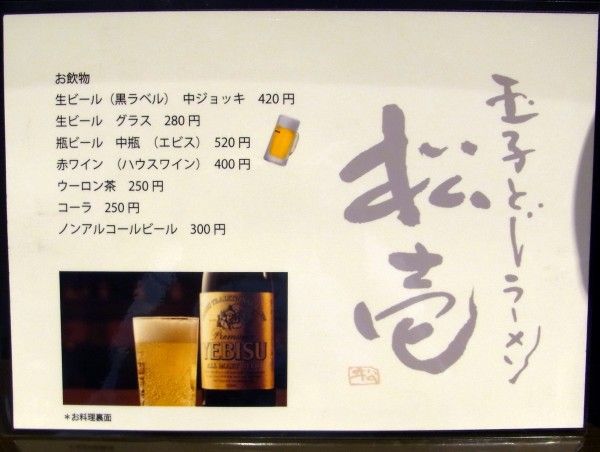 お飲物
生ビール（黒ラベル）　中ジョッキ　420円
生ビール　グラス　280円
瓶ビール　中瓶　（エビス）　520円
赤ワイン　（ハウスワイン）　400円
ウーロン茶　250円
コーラ　250円
ノンアルコールビール　300円
玉子とじラーメン
松壱
YEBISU
＊お料理裏面